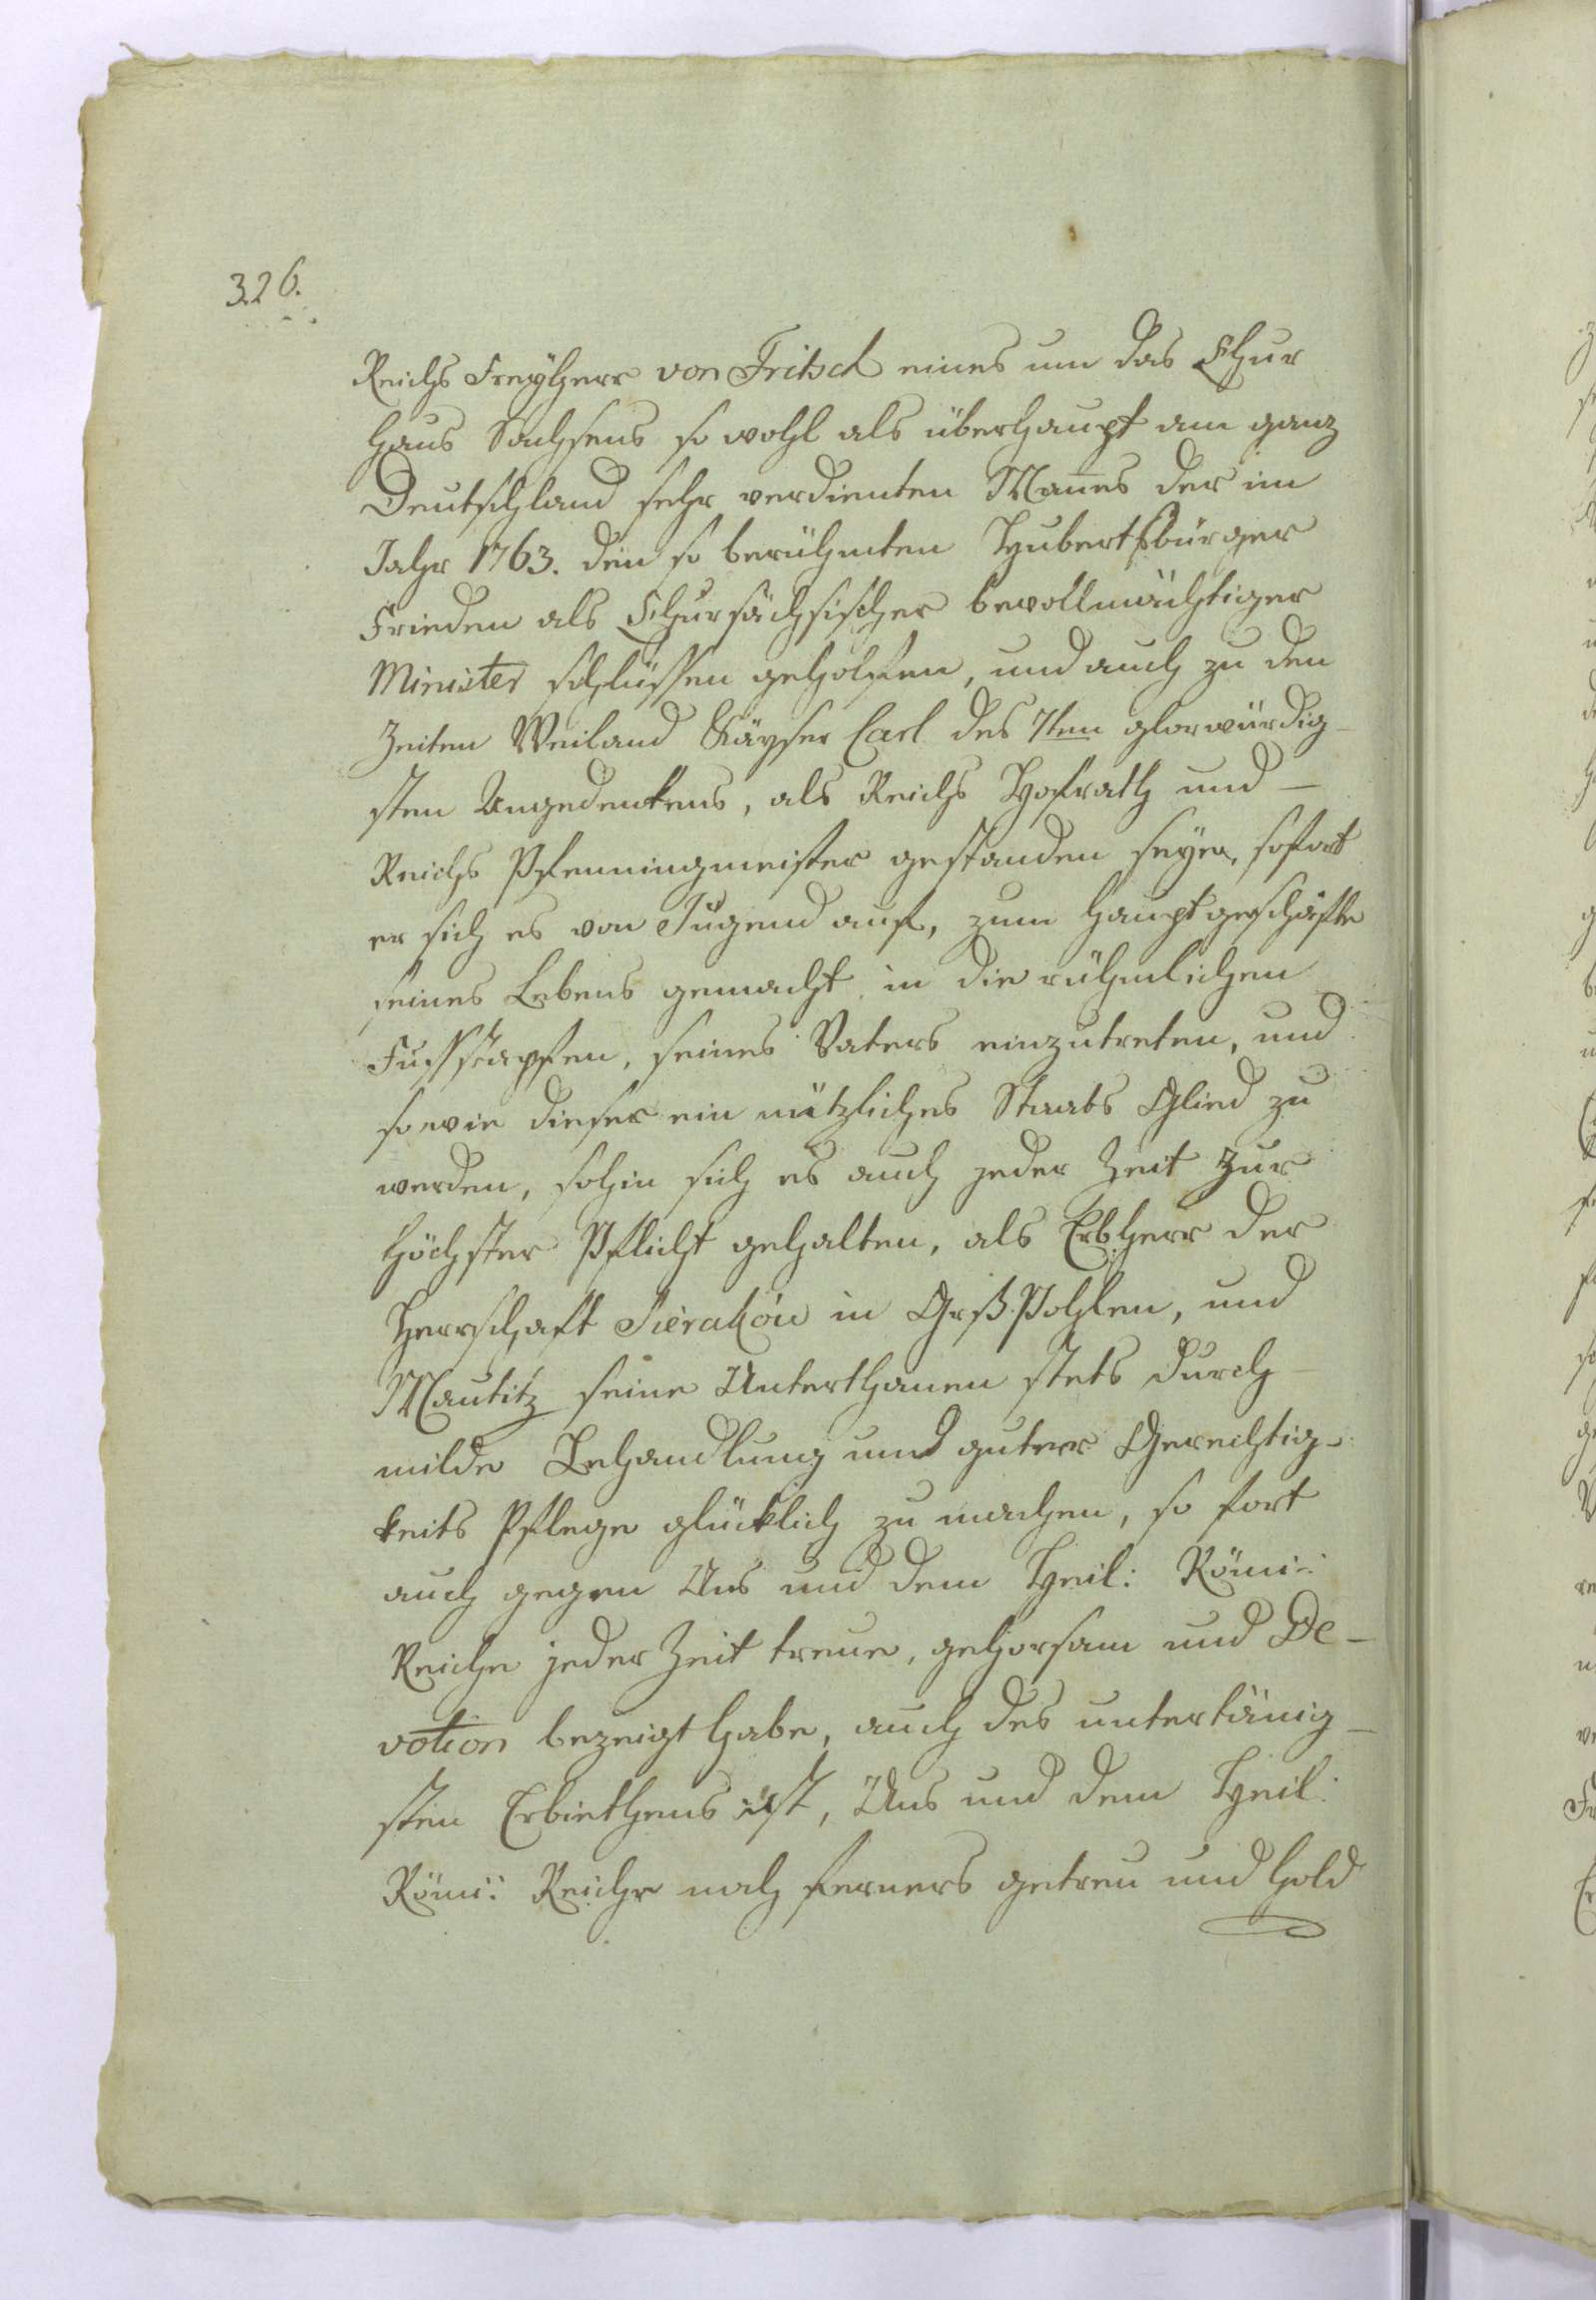 326.
Reichs Freyherr von Fritsch eines um das Chur
Haus Sachsens so wohl als überhaupt am ganz
Deutschland sehr verdienten Mañes der im
Jahr 1763. den so berühmten Hubertsburger
Frieden als Chursächsischer bevollmächtiger
Minister schlüssen geholfen, und auch zu den
Zeiten Weiland Kayser Carl des 7ten glorwürdig-
sten Angedenkens, als Reichs Hofrath und -
Reichs Pfenningmeister gestanden seyen, sofort
er sich es von Jugend auf, zum Hauptgeschäfte
seines Lebens gemacht in die rühmlichen
Fusstapfen, seines Vaters einzutreten, und
so wie dieser ein nützliches Staats Glied zu
werden, sohin sich es auch jeder Zeit zur
höchster Pflicht gehalten, als Erbherr der
Herrschaft Sierakow in GrßPohlen, und
Mautitz seine Unterthanen stets durch -
milde Behandlung und guter Gerechtig-
keits Pflege glücklich zu machen, so fort
auch gegen Uns und dem Heil: Römi:
Reiche jeder Zeit treue, gehorsam und De-
votion bezeigt habe, auch des untertänig-
sten Erbiethens ist, Uns und dem Heil:
Römi: Reiche noch ferners getreu und hold